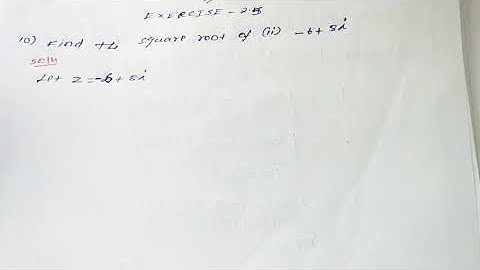 EXERCISE - 2.5
10) Find the square root of (ii) -6+8i
Soln
Let z = -6+8i